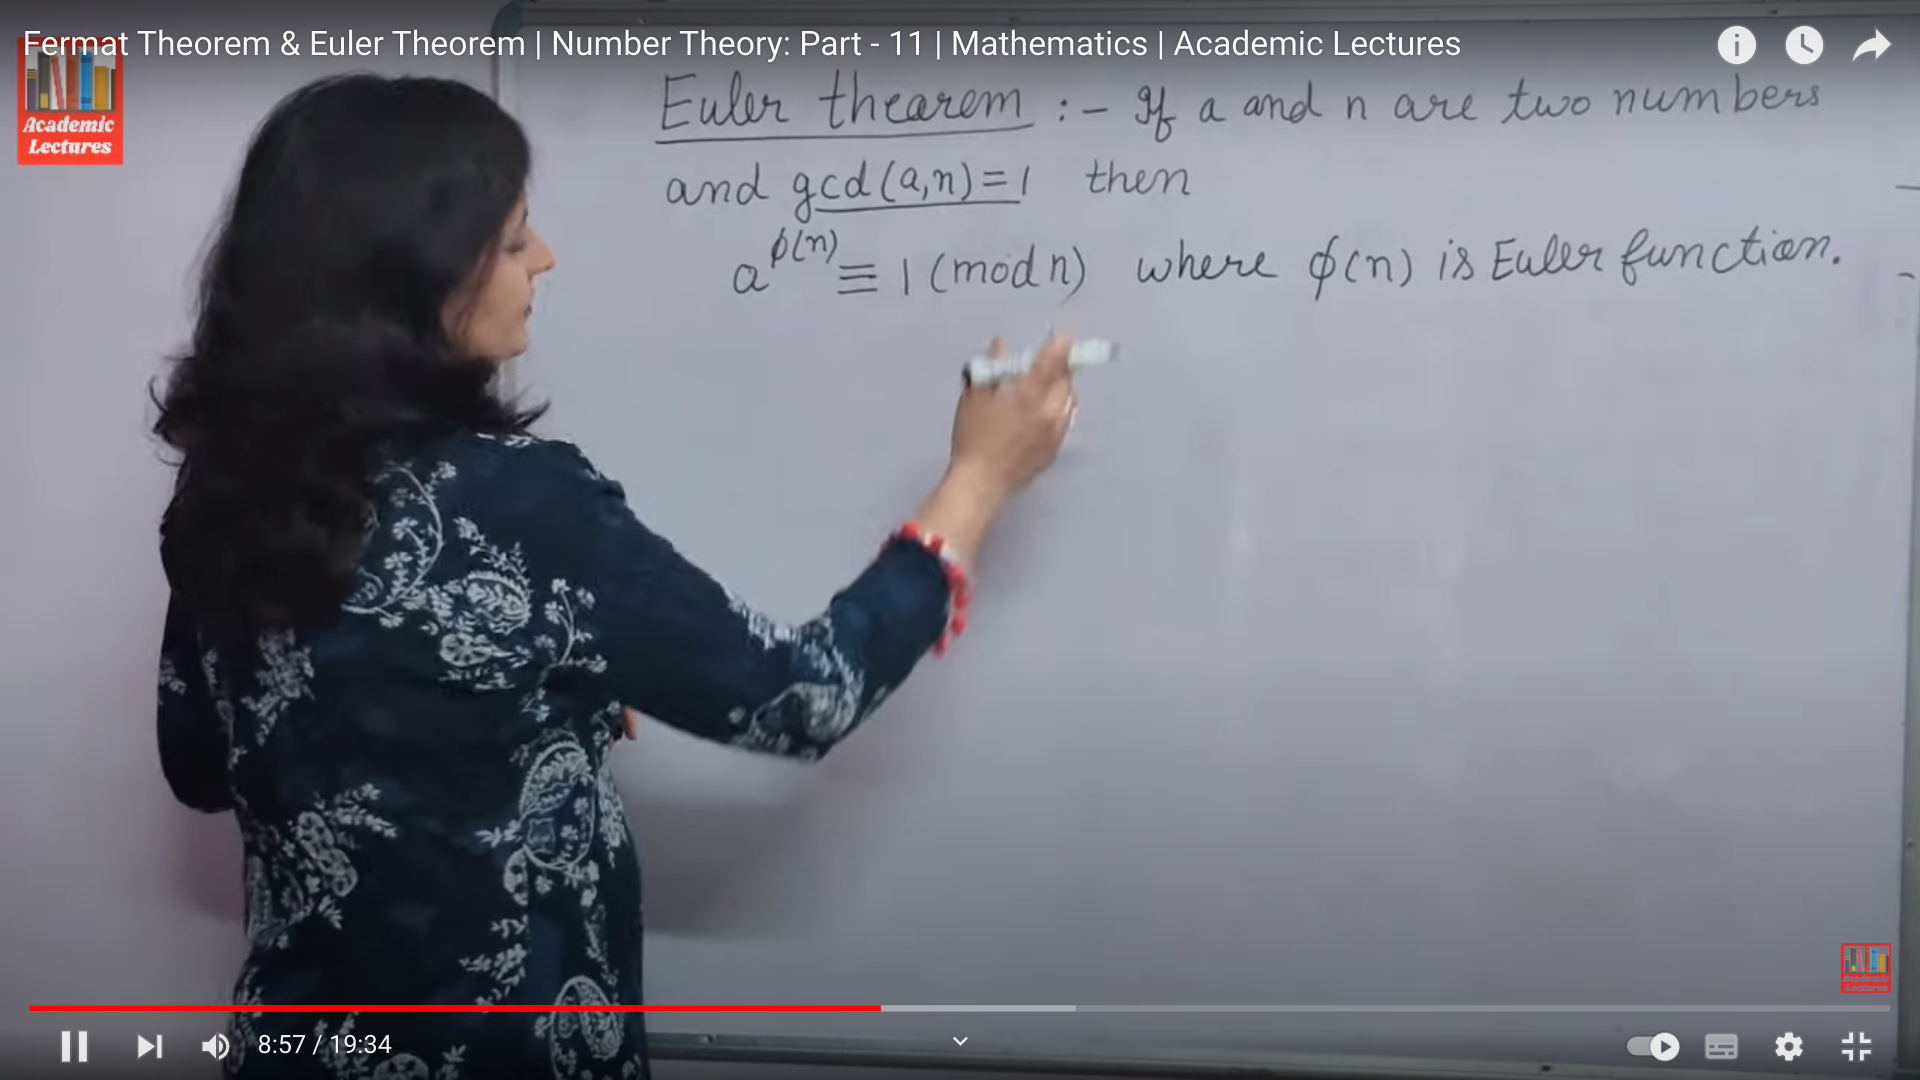 Fermat Theorem & Euler Theorem | Number Theory: Part - 11 | Mathematics | Academic Lectures
Academic
Lectures
Euler thearem :- If a and n are two numbers
and gcd(a,n)=1 then
a^ϕ(n) ≡ 1 (mod n) where ϕ(n) is Euler function.
Academic
Lectures
8:57 / 19:34